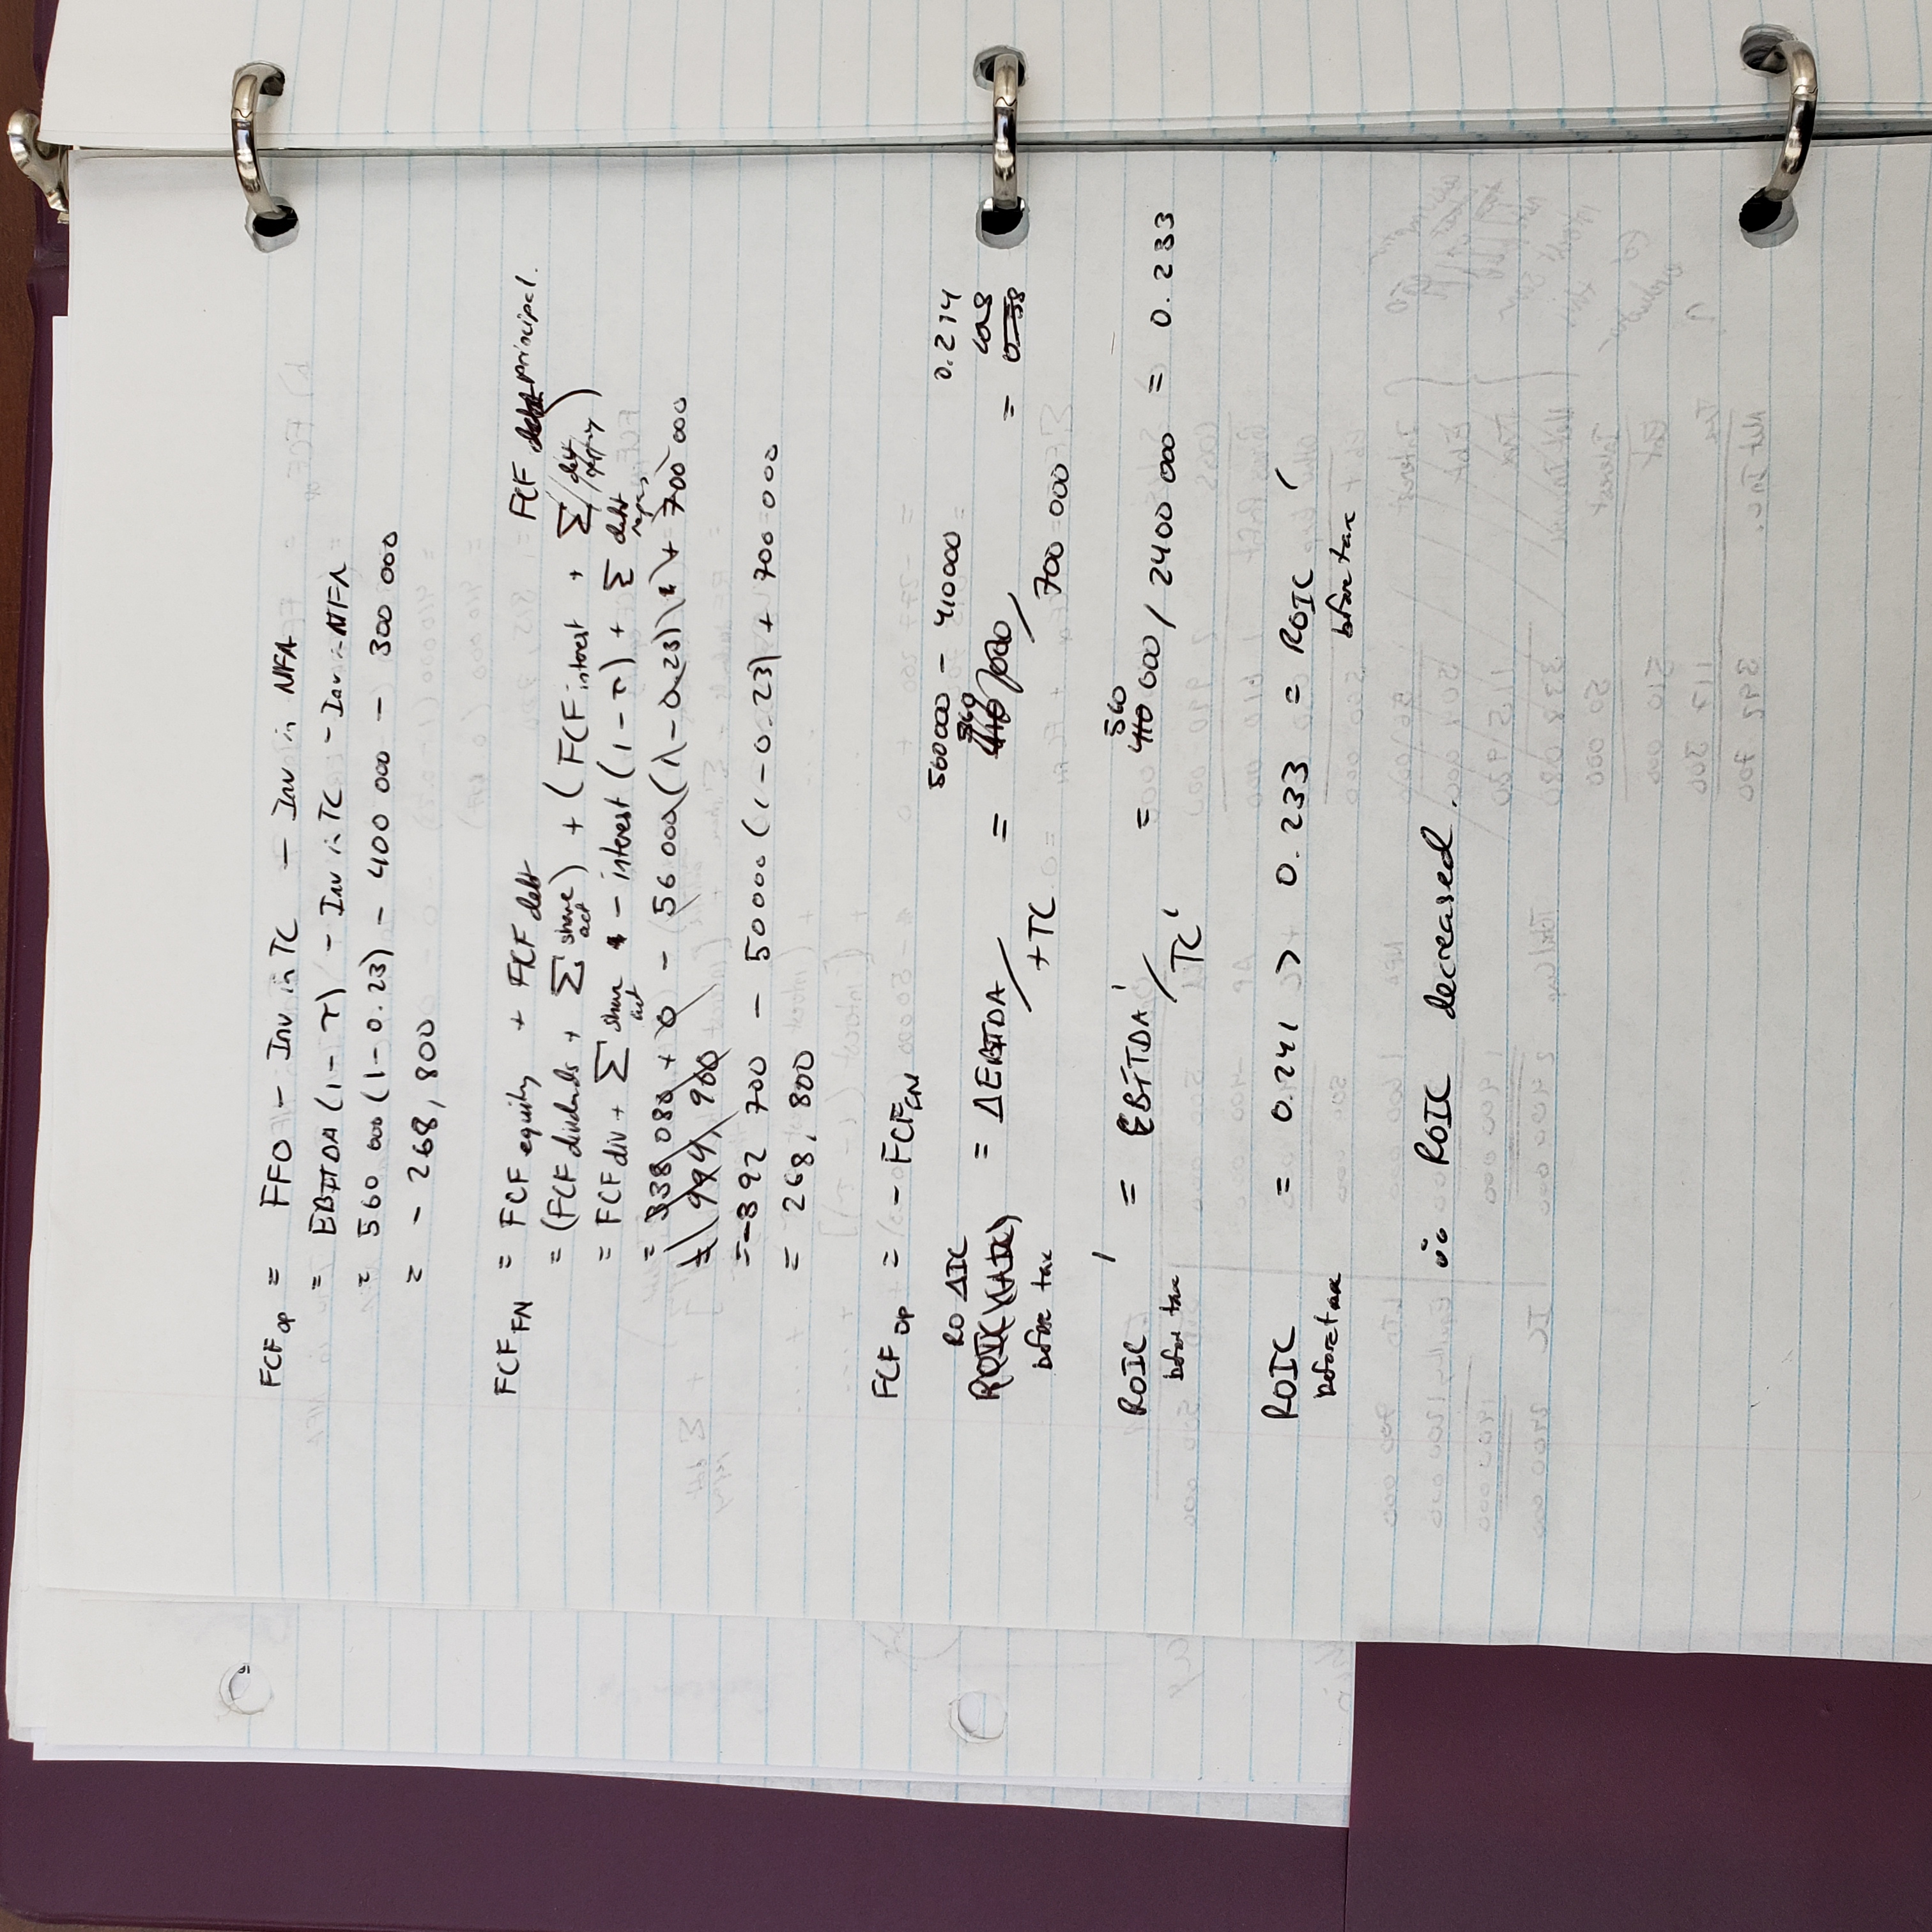 FCF op = FFO - Inv in TC - Inv in NFA
= EBITDA (1 - τ) - Inv in TC - Inv in NFA
= 560 000 (1 - 0.23) - 400 000 - 300 000
= - 268, 800
FCF FN = FCF equity + FCF debt
FCF debt principal.
= (FCF dividends + Σ share act) + (FCF interest + Σ debt repay)
= FCF div + Σ share act - interest (1 - τ) + Σ debt repay
= 338 080 + 0 - 56 000 (1 - 0.23) + 700 000
= 994, 960
= -392 700 - 50000 (1 - 0.23) + 700 000
= 268, 800
FCF OP = - FCF FN
RO ΔIC
560000 - 410000
0.214
ROIC (ΔIC) before tax = ΔEBITDA / +TC = 410 000 / 700 000 = 0.58
560
ROIC ' before tax = EBITDA ' / TC ' = 410 000 / 2400 000 = 0.233
ROIC before tax = 0.241 > 0.233 = ROIC ' before tax
∴ ROIC decreased.